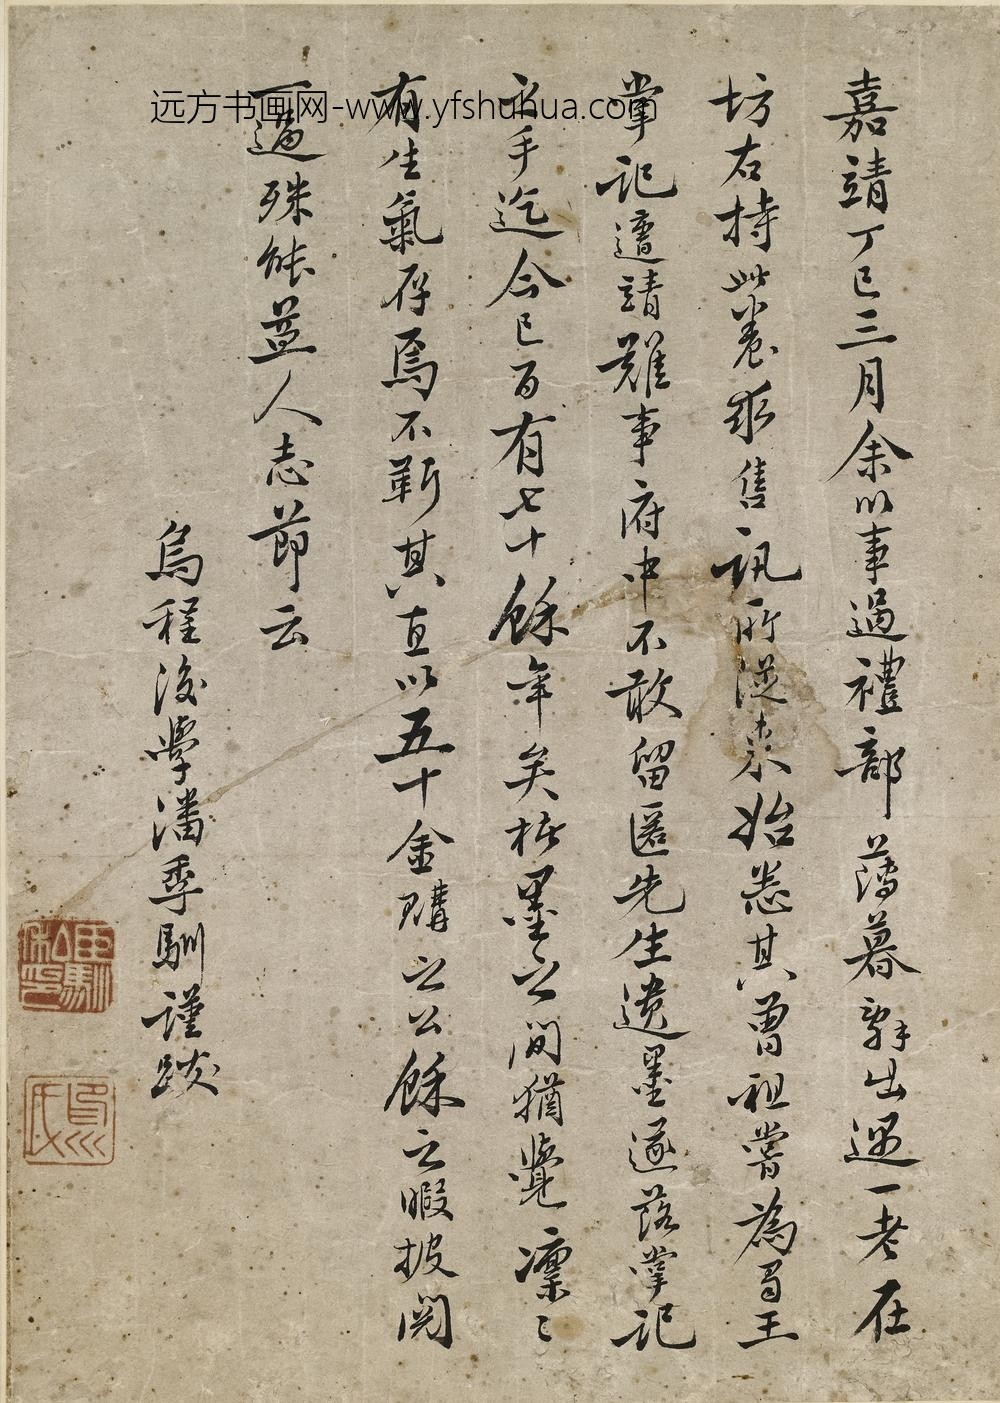 嘉靖丁巳三月余以事過禮部薄暮辭出遇一老在
坊右持此卷求售訊所從来始悉其曽祖嘗為蜀王
掌記遭靖難事府中不敢留匿先生遺墨遂落掌記
之手迄今已百有七十餘年矣楮墨之间猶覺凜〻
有生氣存焉不靳其直以五十金購之公餘之暇披閲
一過殊能益人志節云
烏程後學潘季馴謹跋
季馴私印
远方书画网-www.yfshuhua.com